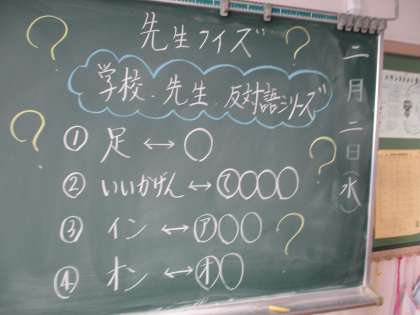 先生クイズ
学校・先生・反対語シリーズ
① 足 ↔ ○
② いいかげん ↔ て○○○○
③ イン ↔ ア○○
④ オン ↔ オ○
二月二日(水)